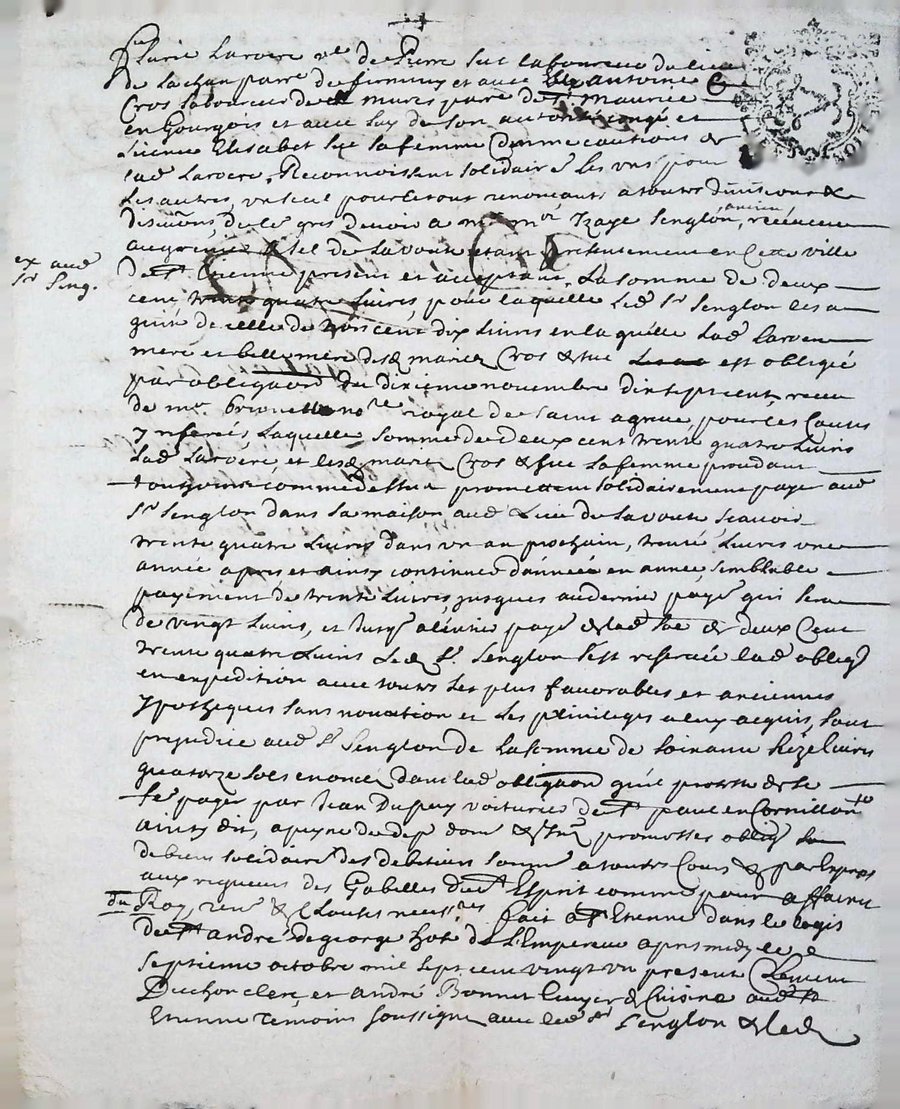 Marie Laroere v.e de Pierre Sue laboureur du lieu
de Lachau parre de firminy et avec Elle antoine
Cros laboureur de murs parre de St Maurice
en Gourgois et avec luy de son autorité congé et
licence Elisabet Sue sa femme comme cautions de
lad Laroere, Reconnoissent solidairem.t les uns pour
les autres, un seul pour le tout renonçants a toutes divisions &
discutions, de le gres devoir a m.r Izaye Senglon, ancien receveur
au grenier a sel de Lavoute etant presentement en cette ville
de St Etienne present et acceptant, La somme de deux
cent trente quatre Livres, pour laquelle led Sr Senglon les a
quitté de celle de trois cent dix Livres en laquelle lad Laroere
mere et belle mere desd mariez Cros & Sue est obligée
par obligaon du dixieme novembre dixsept cent receu
de me no.re royal de saint agreve, pour les causes
y inserées, Laquelle somme de deux cent trente quatre Livres
Lad Laroere et lesd mariez Cros & Sue sa femme
toutjours comme dessus promettent solidairement payer aud
Sr Senglon dans sa maison aud Lieu de Lavoute, sçavoir
trente quatre Livres dans un an prochain, trente Livres une
année apres et ainsy continuer d'année en année, semblable
payement de trente Livres, jusques au dernier paye qui sera
de vingt Livres, et jusq.s a l'entier paye de lad so.e de deux Cent
trente quatre Livres Led Sr Senglon s'est reservée lad obliga.on
en expedition avec toutes les plus favorables et anciennes
Ypotheques sans novation et les privileges a luy acquis, sans
prejudice aud Sr Senglon de la somme de soixante seize Livres
quatorze sols enoncez dans lad obligaon qu'il proteste de se
se payer par Jean Dupuy voiturier de St paul en Cornillon
ainsy dit, a peyne de dep dom & promesses oblig
de biens solidaire des debiteurs soumis a toutes Cours & par Expres
aux rigueurs des Gabelles du St Esprit comme pour affaires
du Roy, ren.e & Clauses necess.res fait a St Etienne dans le logis
de St andré de george hote de L'Empereur apres midy le
septieme octobre mil sept cent vingt un present Clement
Duchon clerc et andré Bonnet Cuyer de Cuisine aud St
Etienne temoins soussignez avec led sr Senglon & led
ex aud
Sr Seng.